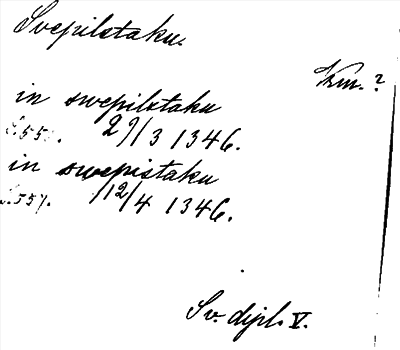 Svepilstaku.
Km. ?
in swepilstaku
S. 55 . 29/3 1346.
in swepistaku
S. 557. 12/4 1346.
Sv. dipl. V.